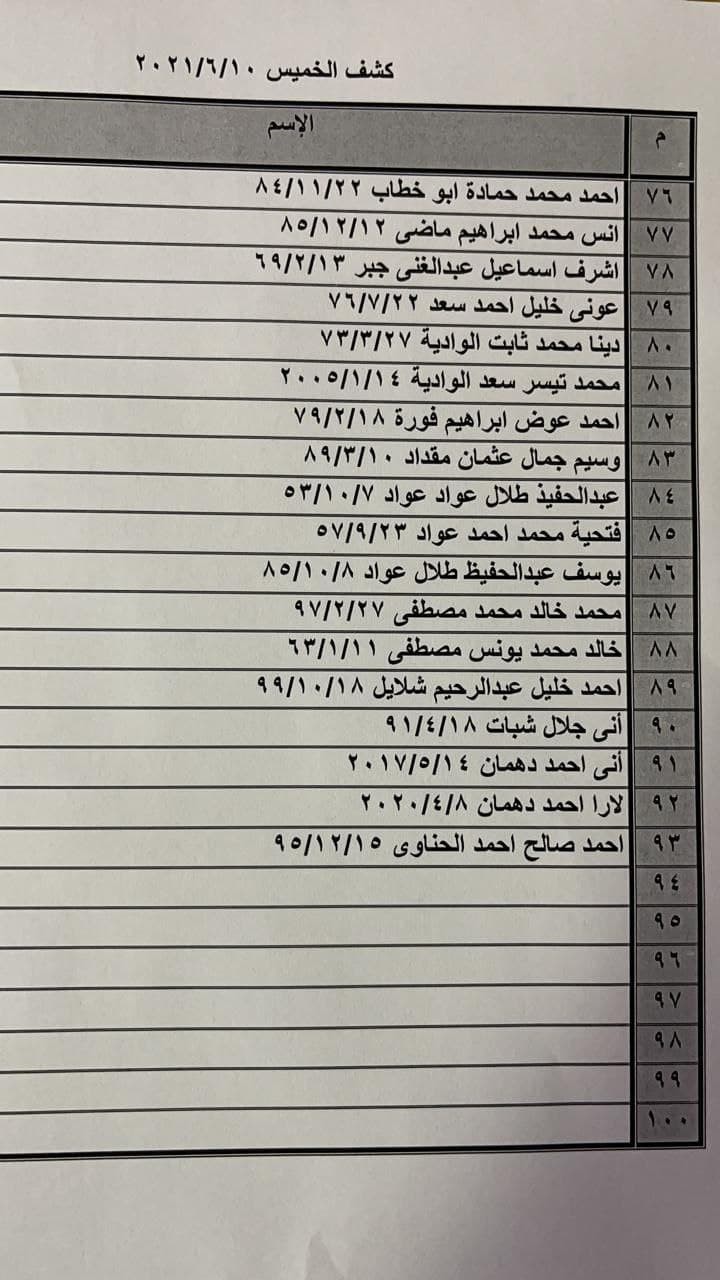 كشف الخميس ٢٠٢١/٦/١٠
م الإسم
٧٦ احمد محمد حمادة ابو خطاب ٨٤/١١/٢٢
٧٧ انس محمد ابراهيم ماضى ٨٥/١٢/١٢
٧٨ اشرف اسماعيل عبدالغنى جبر ٦٩/٢/١٣
٧٩ عونى خليل احمد سعد ٧٦/٧/٢٢
٨٠ دينا محمد ثابت الوادية ٧٣/٣/٢٧
٨١ محمد تيسر سعد الوادية ٢٠٠٥/١/١٤
٨٢ احمد عوض ابراهيم فورة ٧٩/٢/١٨
٨٣ وسيم جمال عثمان مقداد ٨٩/٣/١٠
٨٤ عبدالحفيذ طلال عواد عواد ٥٣/١٠/٧
٨٥ فتحية محمد احمد عواد ٥٧/٩/٢٣
٨٦ يوسف عبدالحفيظ طلال عواد ٨٥/١٠/٨
٨٧ محمد خالد محمد مصطفى ٩٧/٢/٢٧
٨٨ خالد محمد يونس مصطفى ٦٣/١/١١
٨٩ احمد خليل عبدالرحيم شلايل ٩٩/١٠/١٨
٩٠ أنى جلال شبات ٩١/٤/١٨
٩١ أنى احمد دهمان ٢٠١٧/٥/١٤
٩٢ لارا احمد دهمان ٢٠٢٠/٤/٨
٩٣ احمد صالح احمد الحناوى ٩٥/١٢/١٥
٩٤
٩٥
٩٦
٩٧
٩٨
٩٩
١٠٠